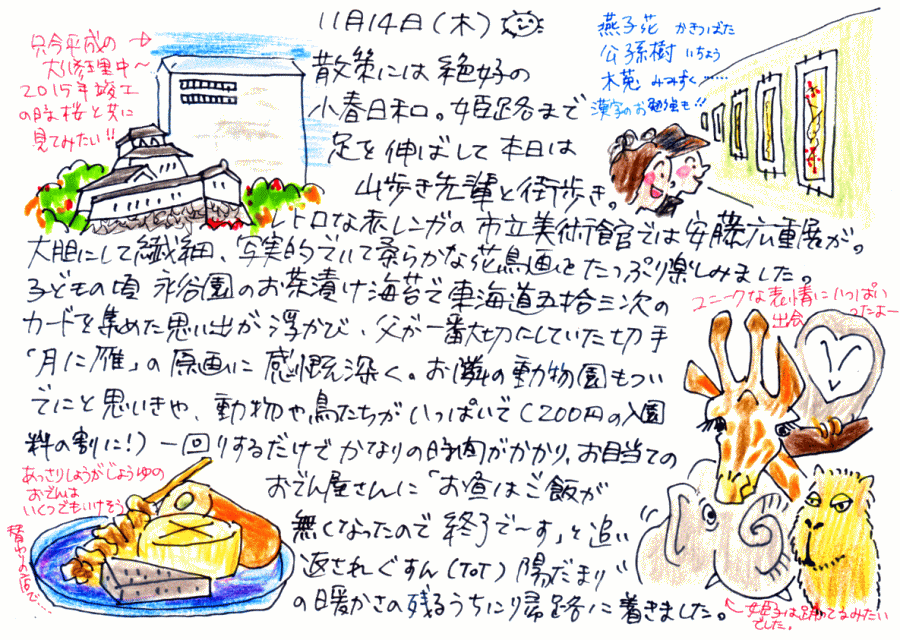 11月14日(木)
只今平成の
大修理中〜
2015年竣工
の時桜と共に
見てみたい!!
燕子花 かきつばた
公孫樹 いちょう
木菟 みみずく……
漢字のお勉強も!!
散策には絶好の
小春日和。姫路まで
足を伸ばして本日は
山歩き先輩と街歩き。
レトロな赤レンガの市立美術館では安藤広重展が。
大胆にして繊細、写実的でいて柔らかな花鳥画をたっぷり楽しみました。
子どもの頃 永谷園のお茶漬け海苔で東海道五拾三次の
カードを集めた思い出が浮かび、父が一番大切にしていた切手
「月に雁」の原画に感慨深く。お隣の動物園もつい
でにと思いきや、動物や鳥たちがいっぱいで(200円の入園
料の割に!)一回りするだけでかなりの時間がかかり、お目当ての
おでん屋さんに「お昼はご飯が
無くなったので終了で〜す」と追い
返されぐすん(ToT)陽だまり
の暖かさの残るうちに帰路に着きました。
ユニークな表情にいっぱい
出会ったよー
あっさりしょうがじょうゆの
おでんは
いくつでもいけそう
替わりの店で…
姫子は踊ってるみたい
でした。